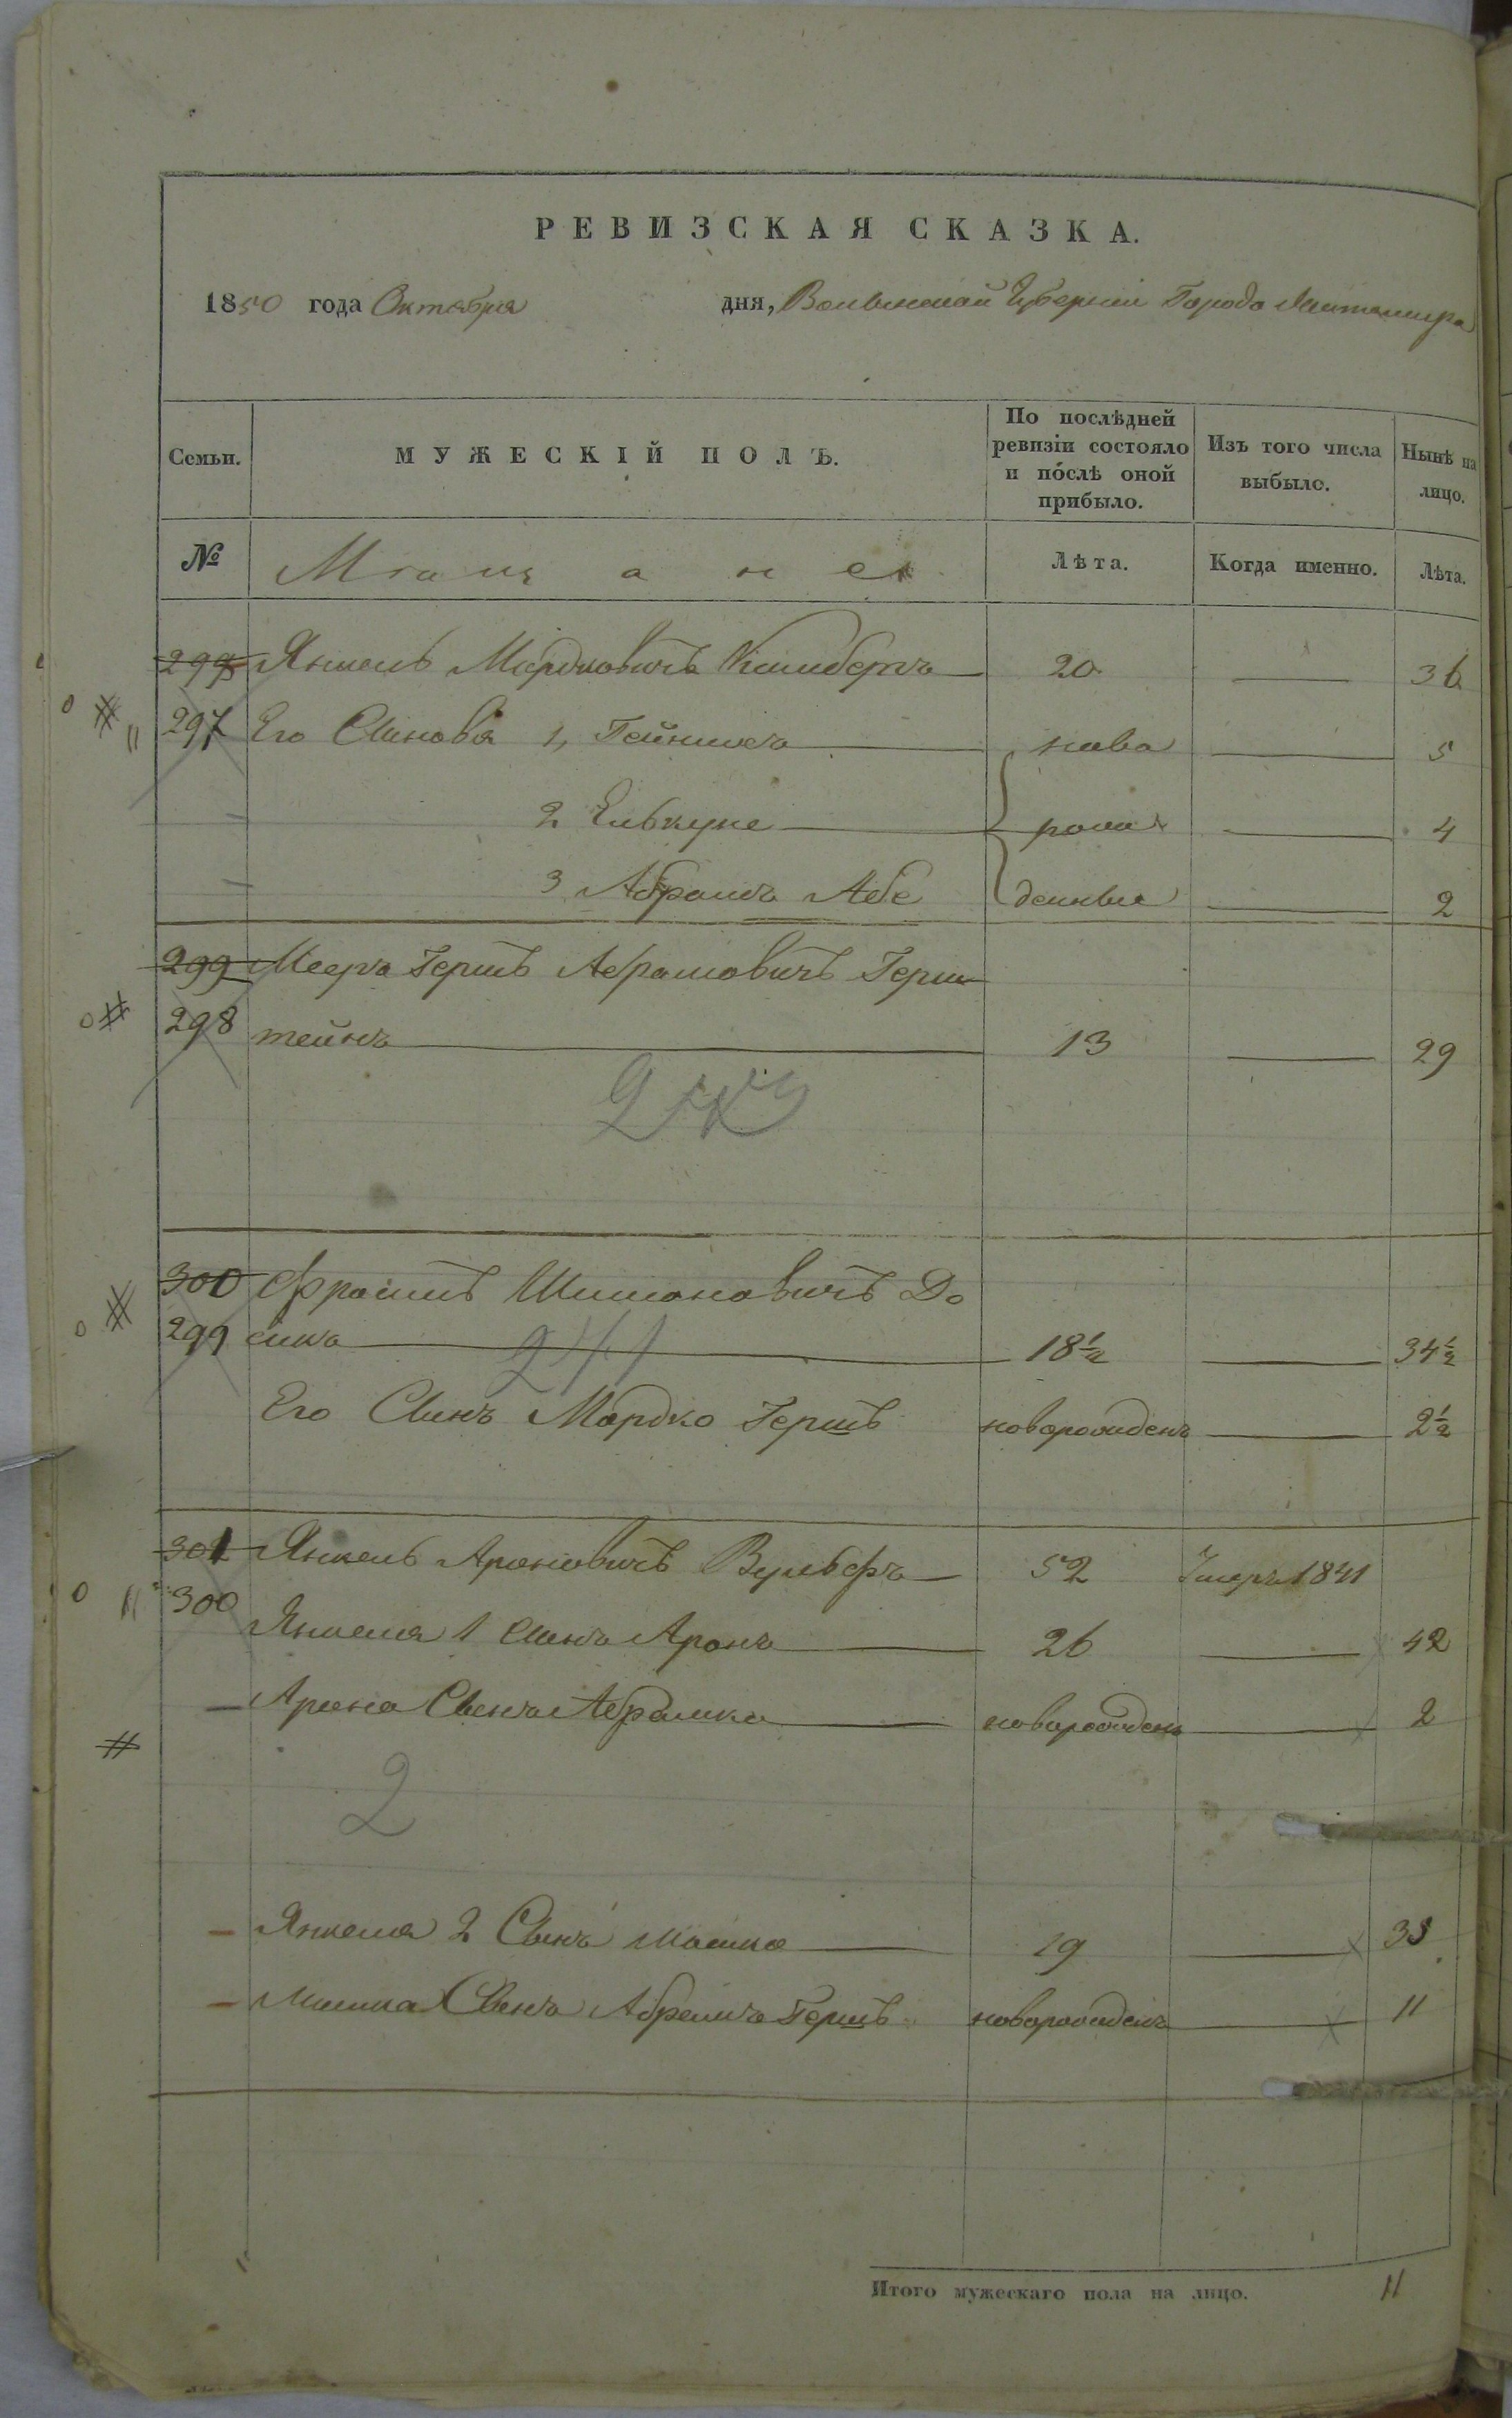 РЕВИЗСКАЯ СКАЗКА.
1850 года Октября дня, Волынской Губерніи Города Житомира
Семьи. МУЖЕСКІЙ ПОЛЪ. По послѣдней ревизіи состояло и по́слѣ оной прибыло. Изъ того числа выбыло. Нынѣ на лицо.
№ Мещане Лѣта. Когда именно. Лѣта.
298 Янкель Мордковичъ 20 36
297 Его Сыновья 1, 5
2 4
3 Абрамъ Абе 2
новорожденные
299 Мееръ Гершъ Абрамовичъ Герш
298 тейнъ 13 29
2
300 Фроимъ Шимоновичъ До
299 18½ 34½
241
Его Сынъ Мордко Гершъ новорожденъ 2½
301 Янкель Ароновичъ Вульфъ 52 Умеръ 1841
300
Янкеля 1 сынъ Аронъ 26 42
Арона Сынъ Абрамко новорожденъ 2
2
Янкеля 2 Сынъ Мошко 19 35
Мошка Сынъ Абрамъ Гершъ новорожденъ 11
Итого мужескаго пола на лицо. 11